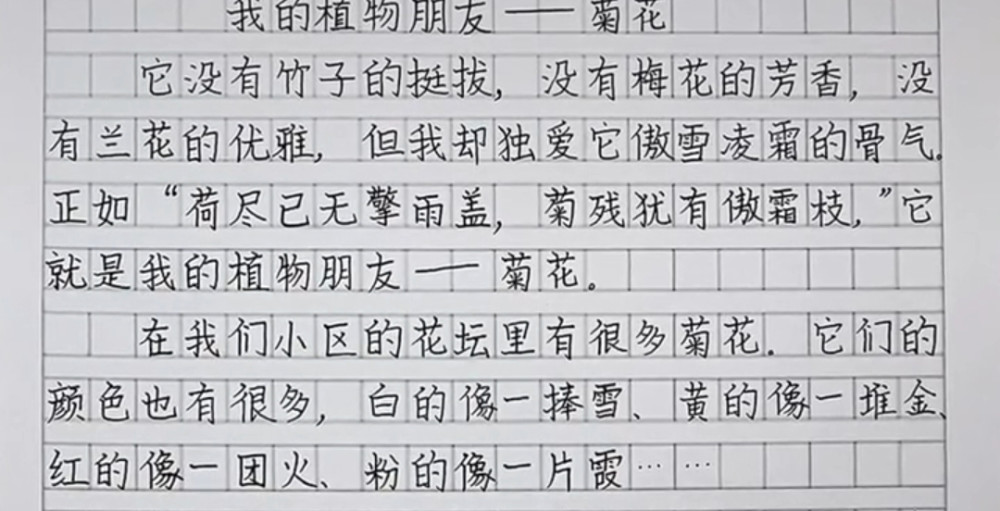 我的植物朋友——菊花
它没有竹子的挺拔,没有梅花的芳香,没
有兰花的优雅,但我却独爱它傲雪凌霜的骨气.
正如“荷尽已无擎雨盖,菊残犹有傲霜枝,”它
就是我的植物朋友——菊花。
在我们小区的花坛里有很多菊花.它们的
颜色也有很多,白的像一捧雪、黄的像一堆金、
红的像一团火、粉的像一片霞……